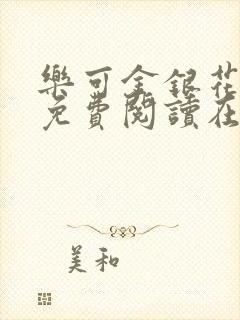 樂可金銀花
免費閱讀在
美和